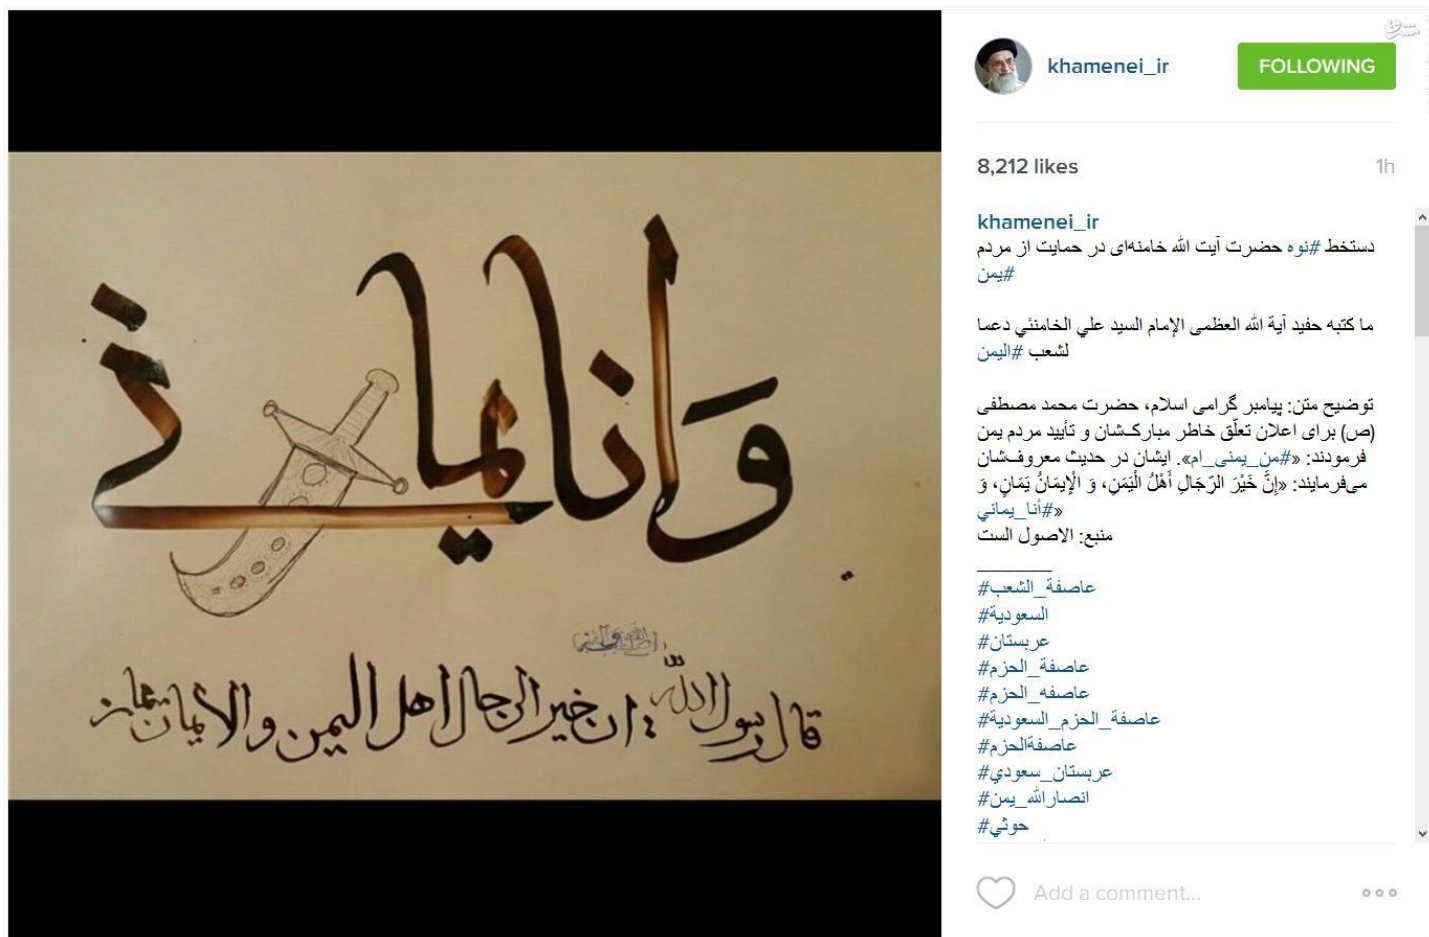 وَانا یمانی
قال رسول الله ان خیر الرجال اهل الیمن و الایمان یمان
khamenei_ir
FOLLOWING
8,212 likes
1h
khamenei_ir
دستخط #نوه حضرت آیت الله خامنه‌ای در حمایت از مردم
#یمن
ما كتبه حفيد آية الله العظمى الإمام السيد علي الخامنئي دعما
لشعب #اليمن
توضیح متن: پیامبر گرامی اسلام، حضرت محمد مصطفی
(ص) برای اعلان تعلّق خاطر مبارک‌شان و تأیید مردم یمن
فرمودند: «#من_یمنی_ام». ایشان در حدیث معروف‌شان
می‌فرمایند: «إِنَّ خَيْرَ الرّجَالِ أَهْلُ الْيَمَنِ، وَ الْإِيمَانُ يَمَانٍ، وَ
#أنا_يماني»
منبع: الاصول الست
#عاصفة_الشعب
#السعودية
#عربستان
#عاصفة_الحزم
#عاصفه_الحزم
#عاصفة_الحزم_السعودية
#عاصفةالحزم
#عربستان_سعودي
#انصارالله_یمن
#حوثي
Add a comment...